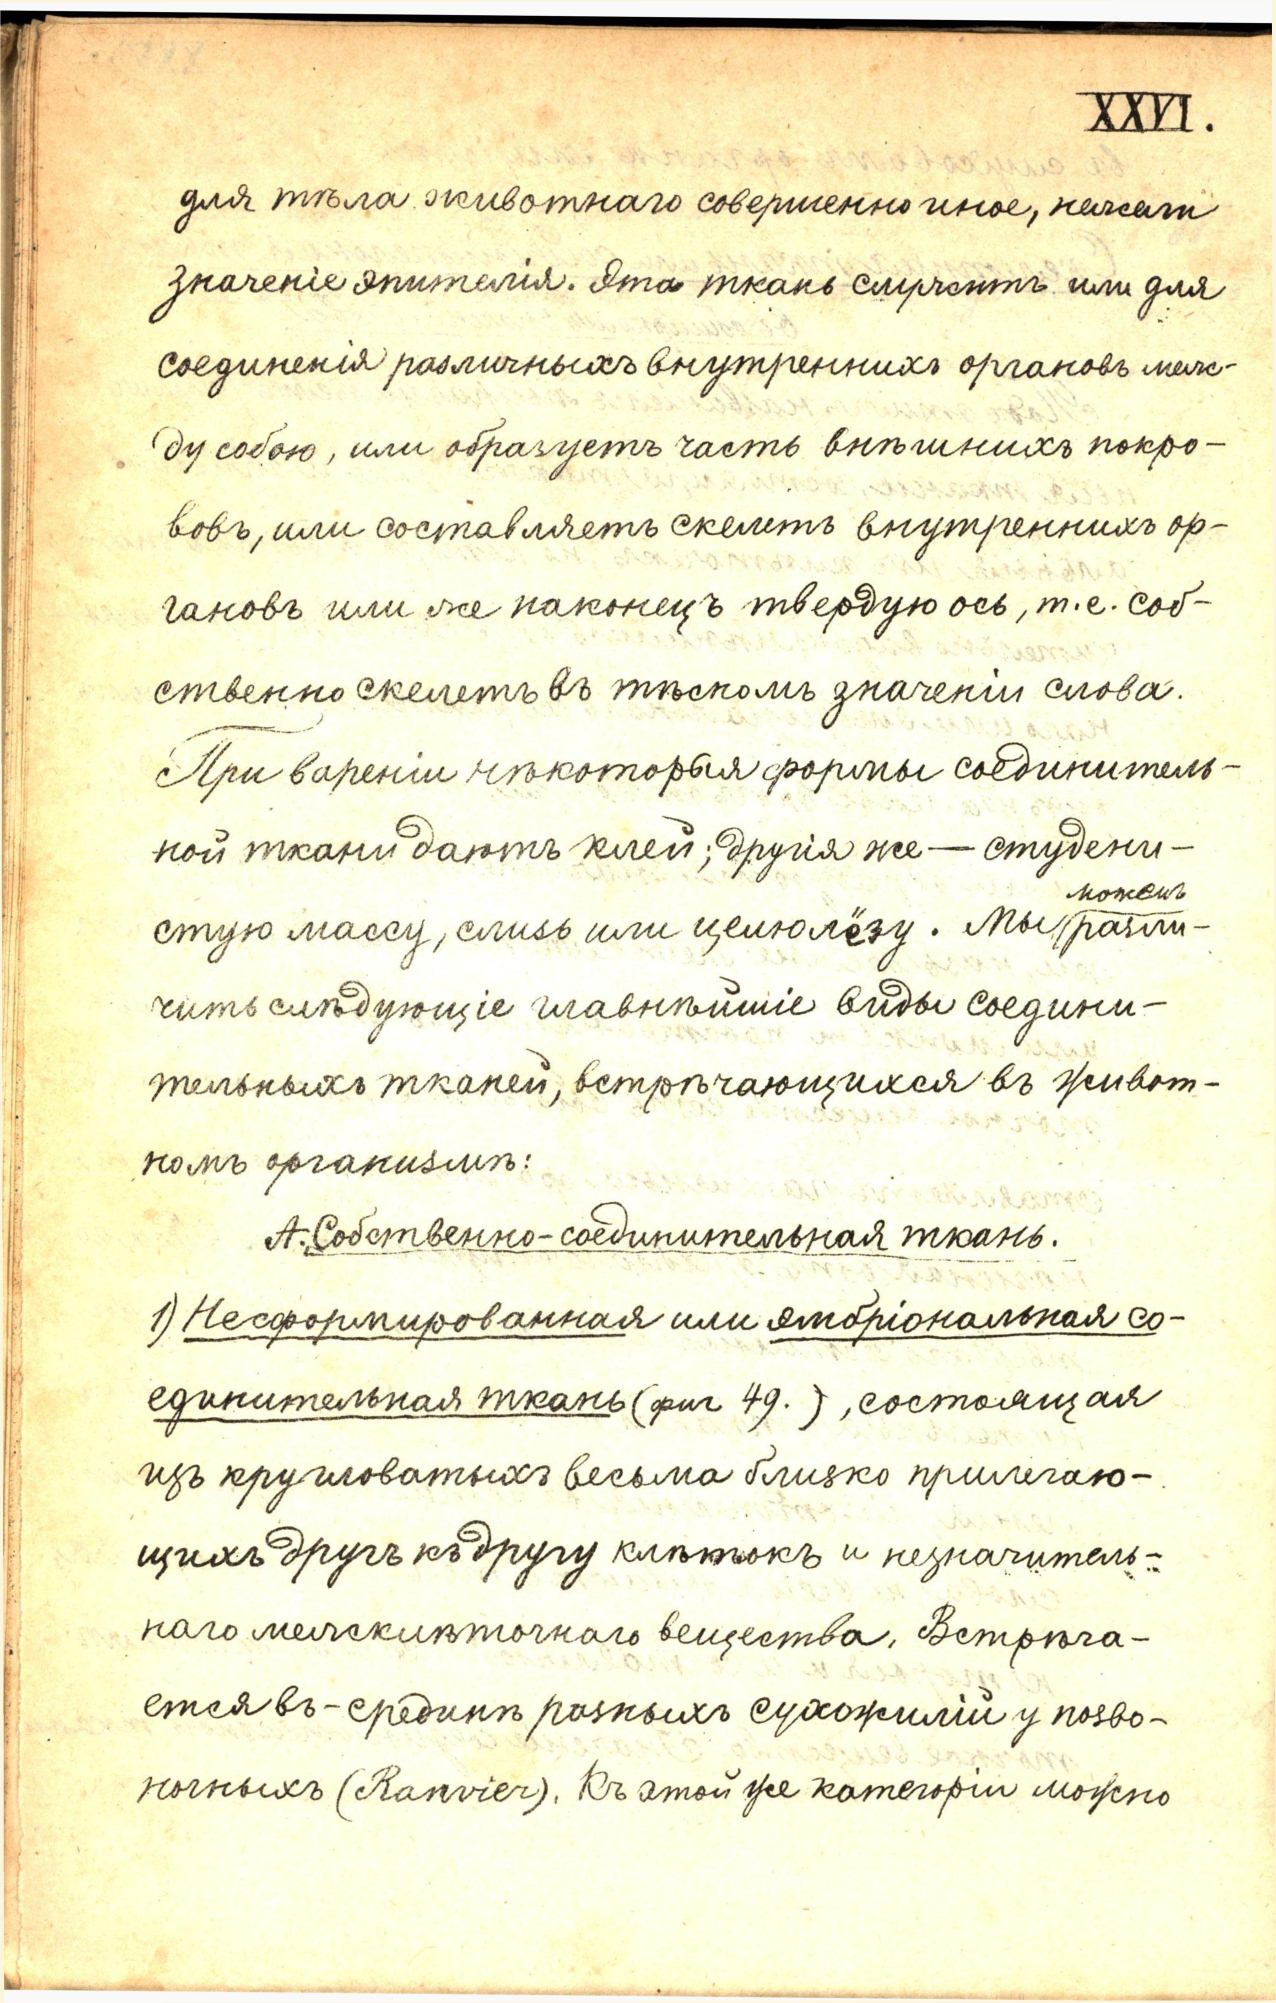 XXVI.
для тѣла животнаго совершенно иное, нежели
значеніе эпителія. Эта ткань служитъ или для
соединенія различныхъ внутреннихъ органовъ меж-
ду собою, или образуетъ часть внѣшнихъ покро-
вовъ, или составляетъ скелетъ внутреннихъ ор-
гановъ или же наконецъ твердую ось, т.е. соб-
ственно скелетъ въ тѣсномъ значеніи слова.
При вареніи нѣкоторыя формы соединитель-
ной ткани даютъ клей; другія же — студени-
можемъ
стую массу, слизь или целюлёзу. Мы разли-
чить слѣдующіе главнѣйшіе виды соедини-
тельныхъ тканей, встрѣчающихся въ живот-
номъ организмѣ:
А. Собственно-соединительная ткань.
1) Несформированная или эмбріональная со-
единительная ткань (фиг 49.), состоящая
изъ кругловатыхъ весьма близко прилегаю-
щихъ другъ къ другу клѣтокъ и незначитель-
наго межклѣточнаго вещества. Встрѣча-
ется въ-срединѣ разныхъ сухожилій у позво-
ночныхъ (Ranvier). Къ этой же категоріи можно